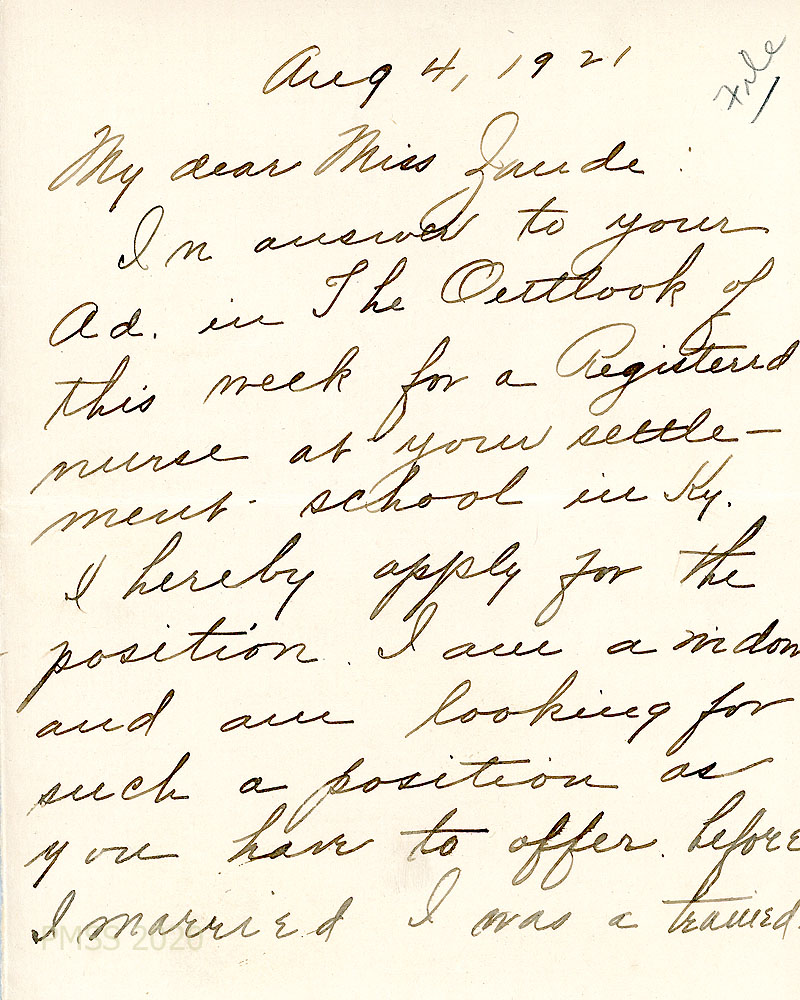 Aug 4, 1921
File
My dear Miss Zande:
In answer to your
Ad. in The Outlook of
this week for a Registerrd
nurse at your settle-
ment school in Ky.
I hereby apply for the
position. I am a widow
and am looking for
such a position as
you have to offer. before
I married I was a trained
PMSS 2020